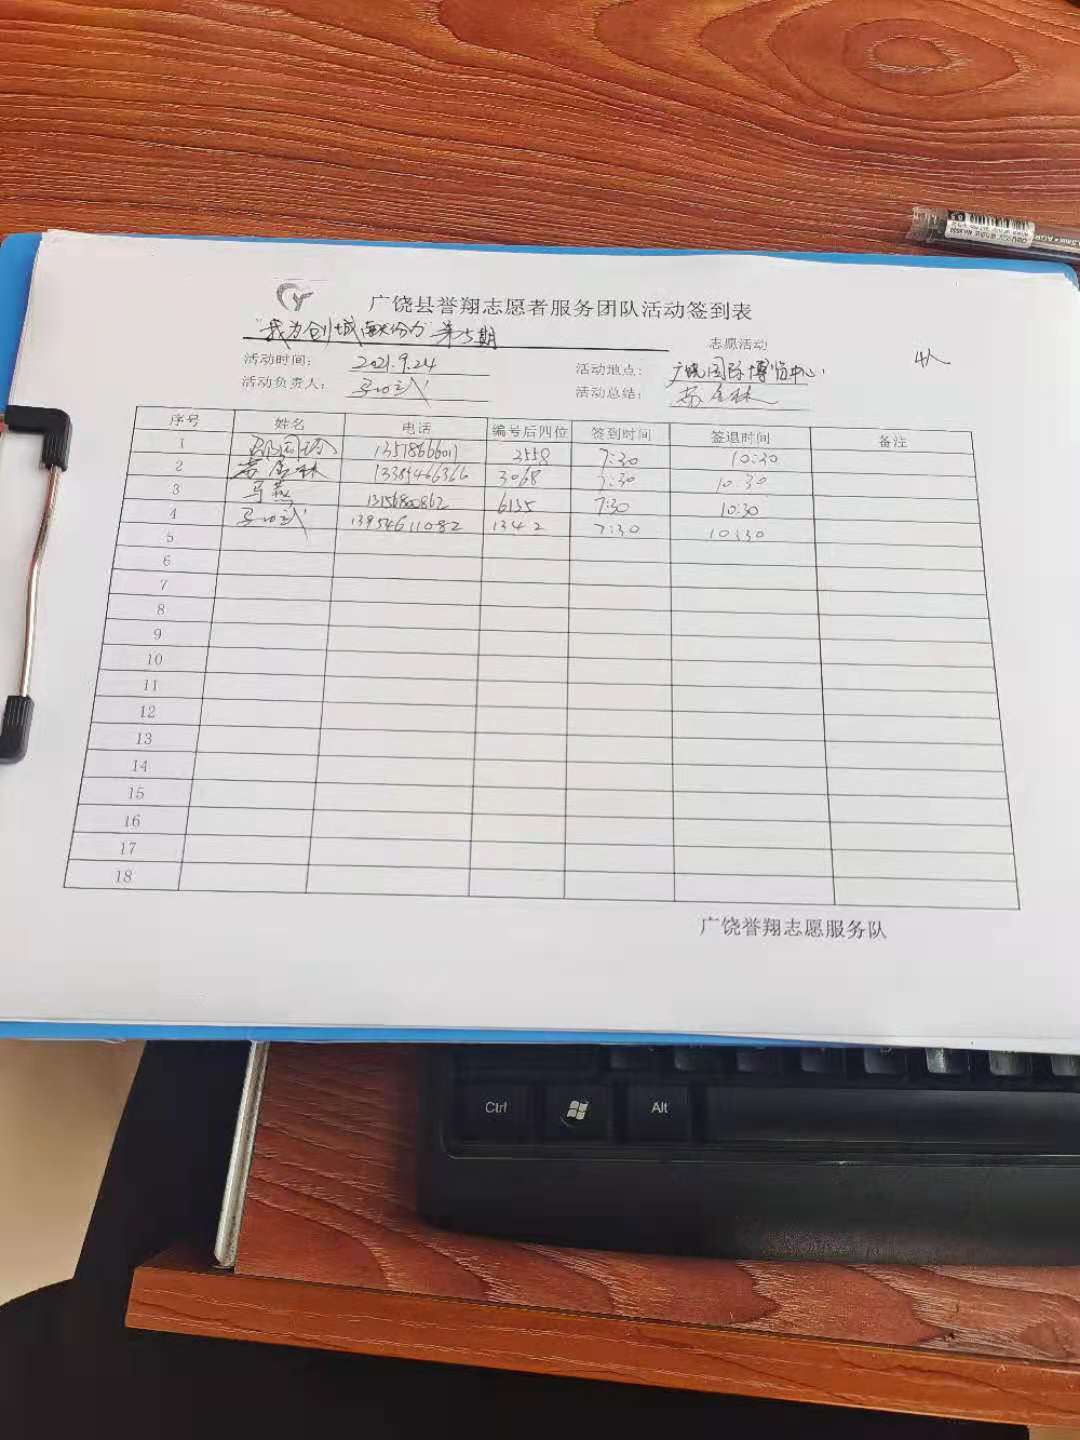 广饶县誉翔志愿者服务团队活动签到表
"我为创城献份力"第5期 志愿活动
活动时间： 2021.9.24 活动地点： 广饶国际博览中心 4人
活动负责人： 活动总结：
序号 姓名 电话 编号后四位 签到时间 签退时间 备注
1 13578666017 3558 7:30 10:30
2 13389466366 3068 7:30 10:30
3 马燕 13156800862 6135 7:30 10:30
4 13954611082 1342 7:30 10:30
5
6
7
8
9
10
11
12
13
14
15
16
17
18
广饶誉翔志愿服务队
Ctrl Alt